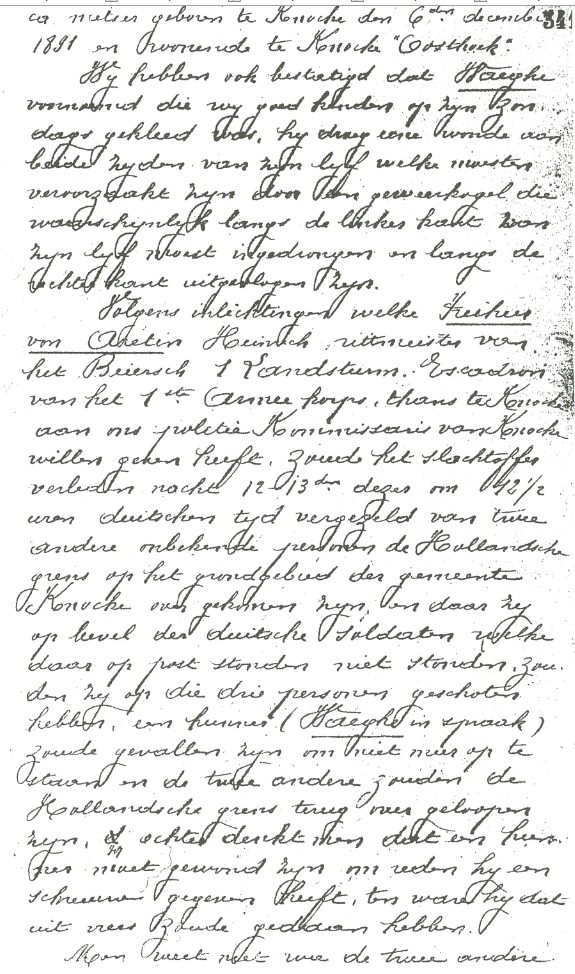 ca metser geboren te Knocke den 6den december 341
1891 en woonende te Knocke "Oosthoek".
Wy hebben ook bestatigd dat Waeghe
voornoemd die wy goed kenden op zyn Zon-
dags gekleed was, hy droeg eene wonde aan
beide zyden van zyn lyf welke moesten
veroorzaakt zyn door een geweerkogel die
waarschynlyk langs de linkes kant van
zyn lyf moest ingedrongen en langs de
rechter kant uitgevlogen zyn.
Volgens inlichtingen welke Freiherr
von Aretin Heinrich, rittmeister van
het Beiersch 1 Landsturm. Escadron
van het 1ste Armee korps, thans te Knocke
aan ons politie Kommissaris van Knocke
willen geven heeft, zoude het slachtoffer
verleden nacht 12-13den dezes om 12 1/2
uren duitschen tyd vergezeld van twee
andere onbekende personen de Hollandsche
grens op het grondgebied der gemeente
Knocke over gekomen zyn, en daar zy
op bevel der duitsche soldaten welke
daar op post stonden niet stonden, zou-
den zy op die drie personen geschoten
hebben, een hunner (Waeghe in spraak)
zoude gevallen zyn om niet meer op te
staan en de twee andere zouden de
Hollandsche grens terug over geloopen
zyn, echter denkt men dat een hun-
ner moet gewond zyn om reden hy een
schreeuw gegeven heeft, ten ware hy dat
uit vrees zoude gedaan hebben.
Men weet niet wie de twee andere